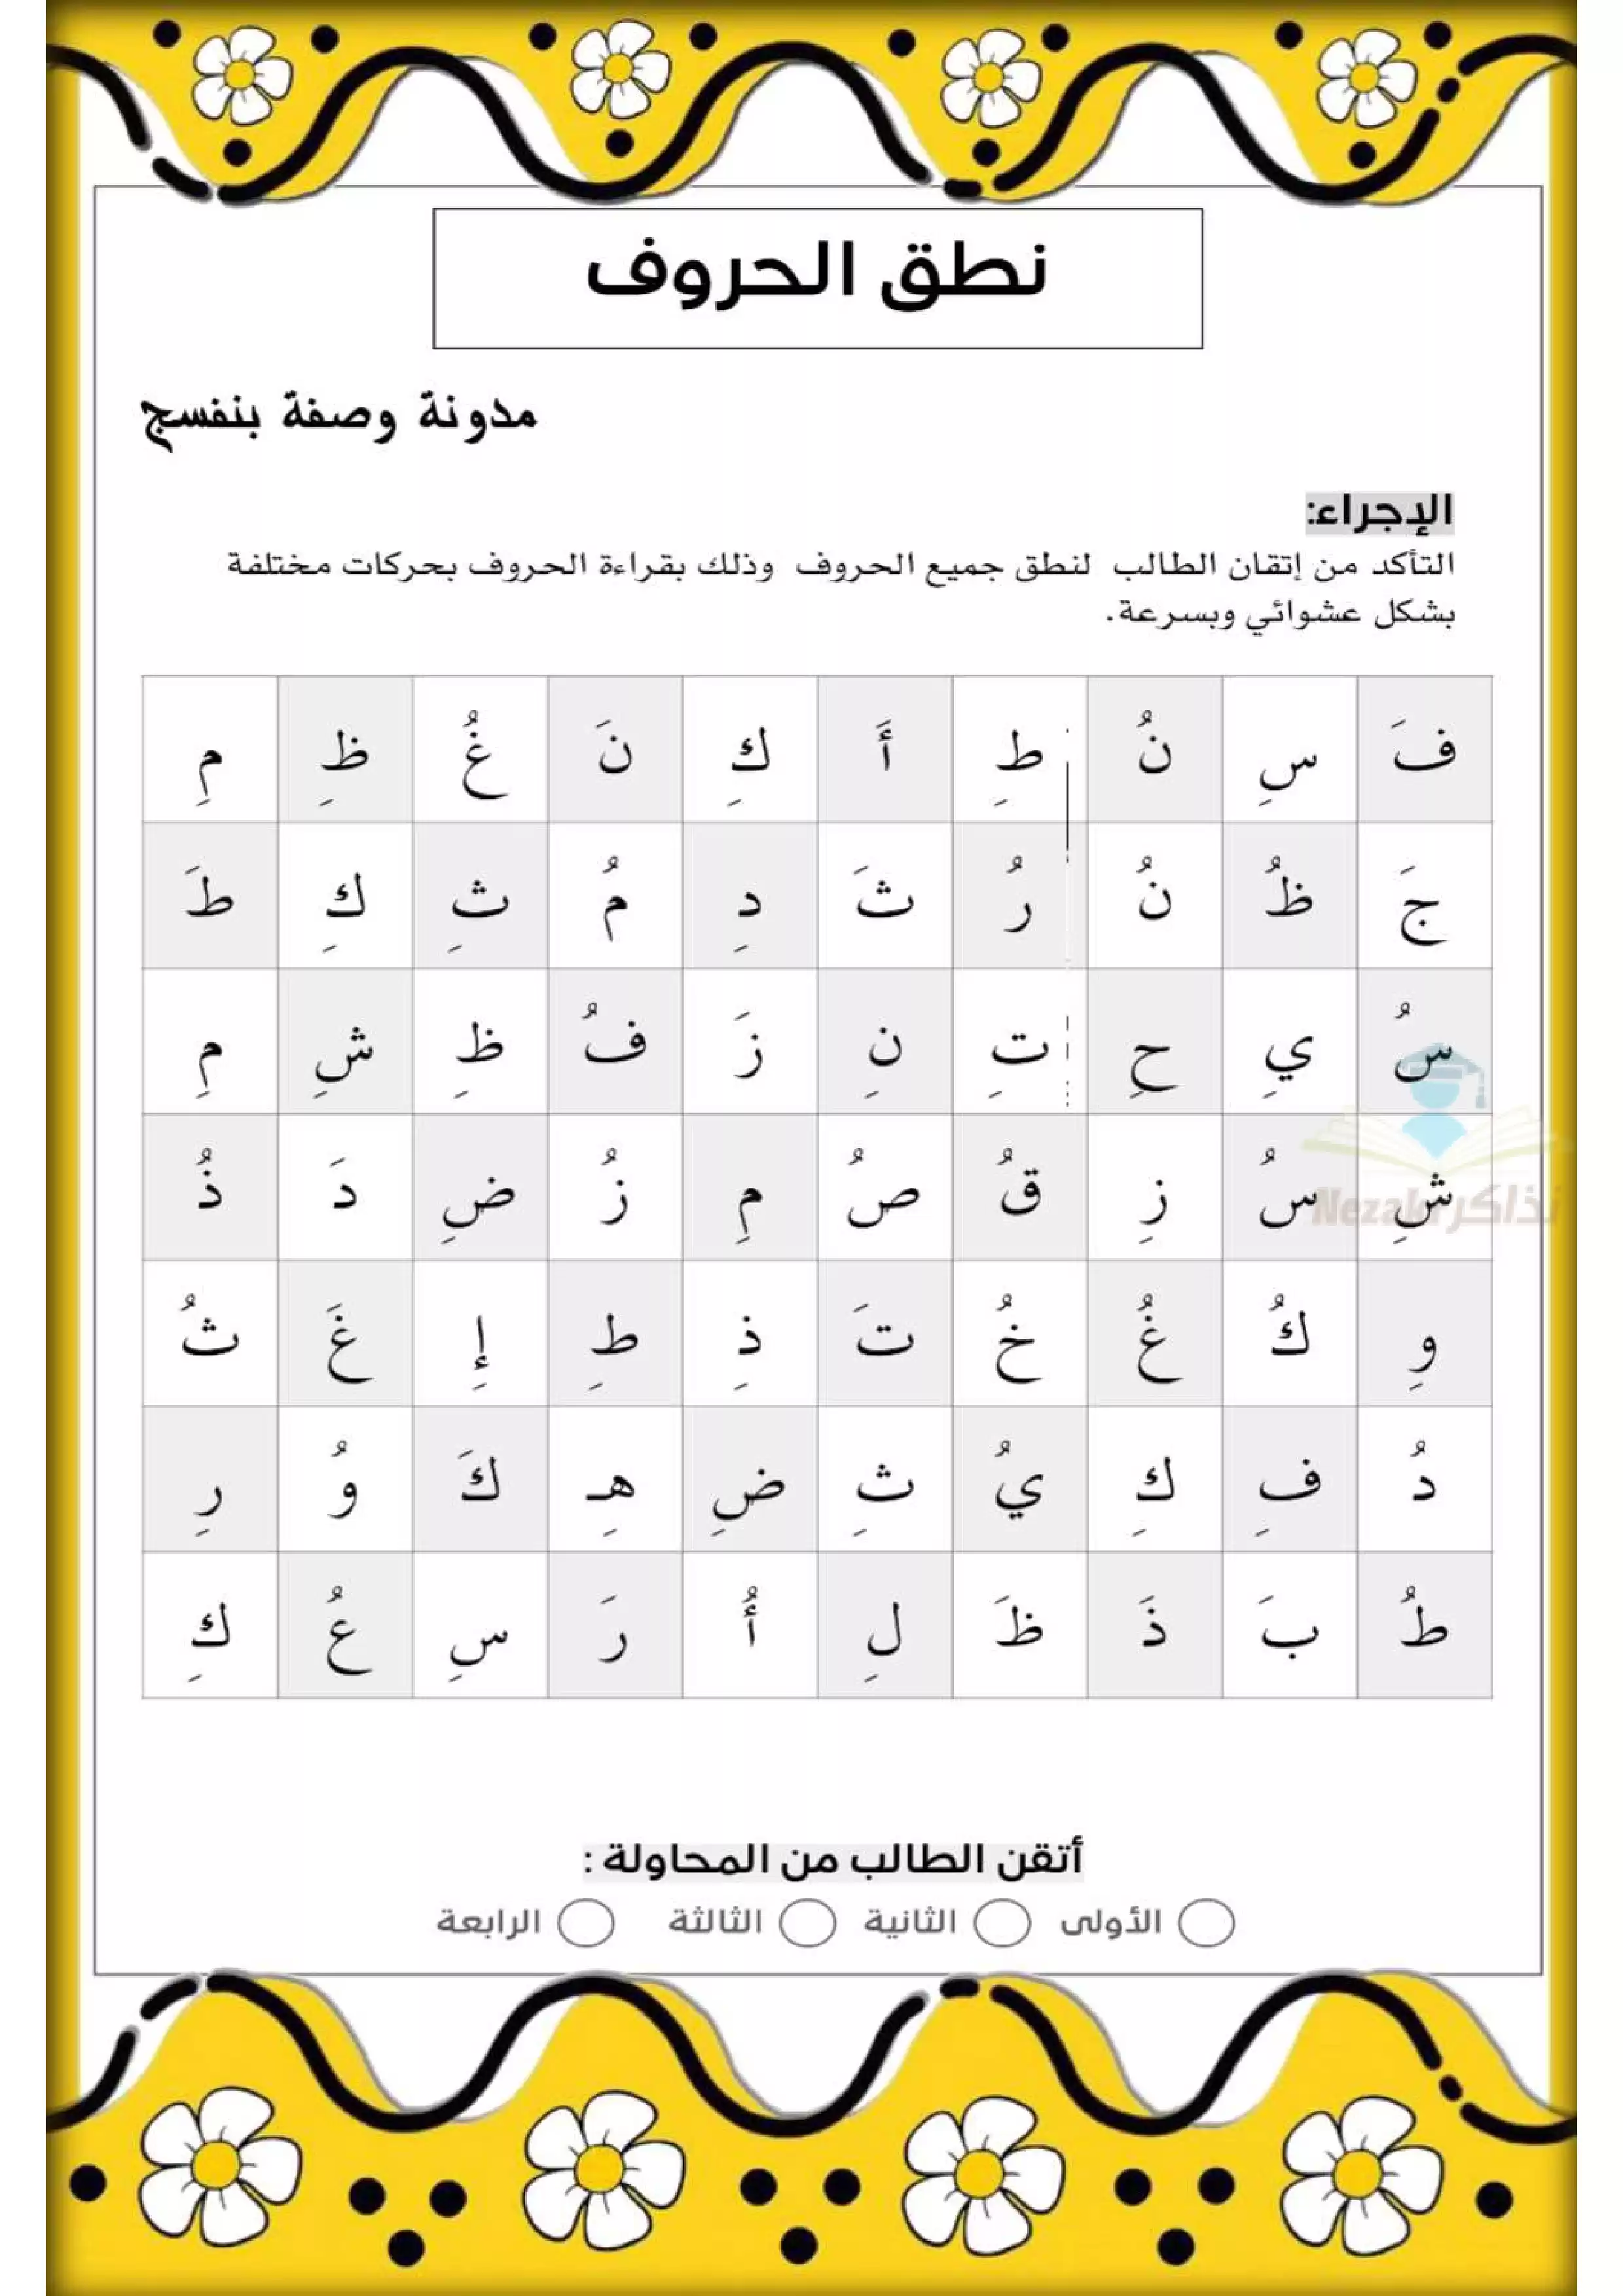 نطق الحروف
مدونة وصفة بنفسج
الإجراء:
التأكد من إتقان الطالب لنطق جميع الحروف وذلك بقراءة الحروف بحركات مختلفة
بشكل عشوائي وبسرعة.
فَ سِ نُ طِ أَ كِ نَ غُ ظِ مِ
جَ ظُ نُ رُ ثَ دِ مُ ثِ كِ طَ
سُ يِ حِ تِ نِ زَ فُ ظِ شِ مِ
شِ سُ زِ قُ صُ مِ زُ ضِ دَ ذُ
وِ كُ غُ خُ تَ ذِ طِ إِ غَ ثُ
دُ فِ كِ يُ ثِ ضِ هِـ كَ وُ رِ
طُ بَ ذَ ظَ لِ أُ رَ سِ عُ كِ
نذاكر Nezakr
أتقن الطالب من المحاولة :
الأولى الثانية الثالثة الرابعة